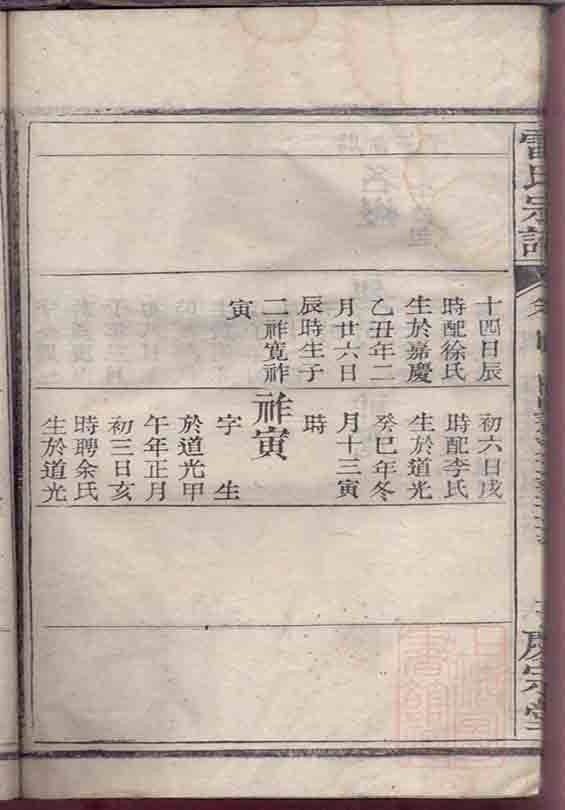 雷氏宗譜
十四日辰
時配徐氏
生於嘉慶
乙丑年二
月廿六日
辰時生子
二祚寬祚
寅
初六日戌
時配李氏
生於道光
癸巳年冬
月十三寅
時
祚寅
字生
於道光甲
午年正月
初三日亥
時聘余氏
生於道光